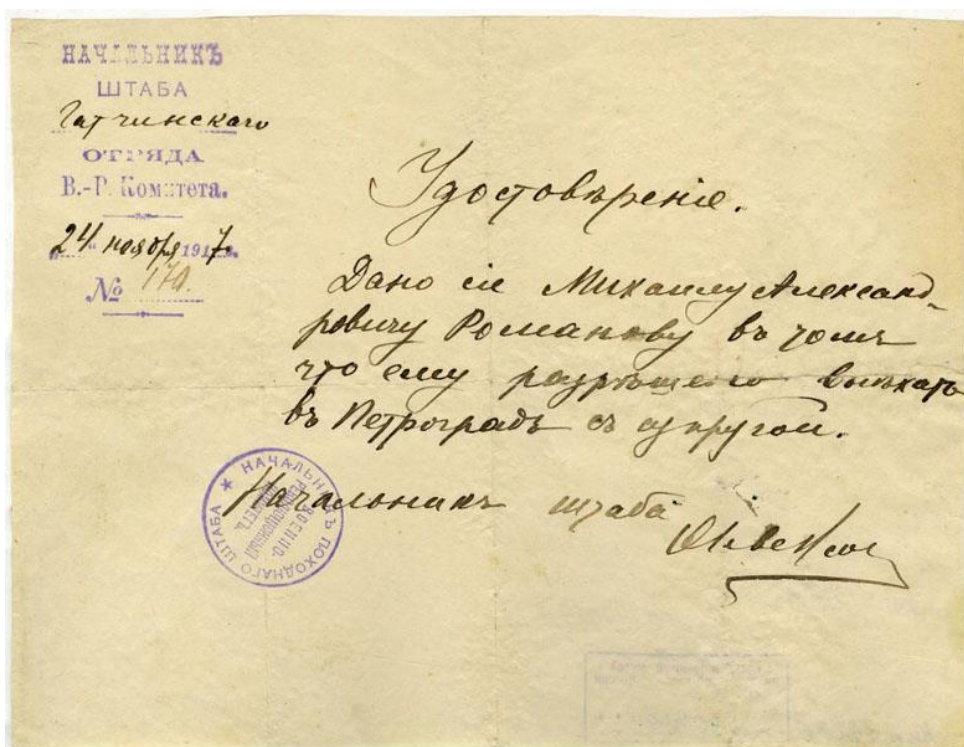 НАЧАЛЬНИКЪ
ШТАБА
Гатчинскаго
ОТРЯДА
В.-Р. Комитета.
„24“ ноября 1917 г.
№ 170.
Удостовѣреніе.
Дано сіе Михаилу Александ-
ровичу Романову въ томъ
что ему разрѣшено выѣхать
въ Петроградъ съ супругой.
Начальникъ штаба
НАЧАЛЬНИКЪ ПОХОДНАГО ШТАБА
ВОЕННО-
РЕВОЛЮЦІОННЫЙ
КОМИТЕТЪ